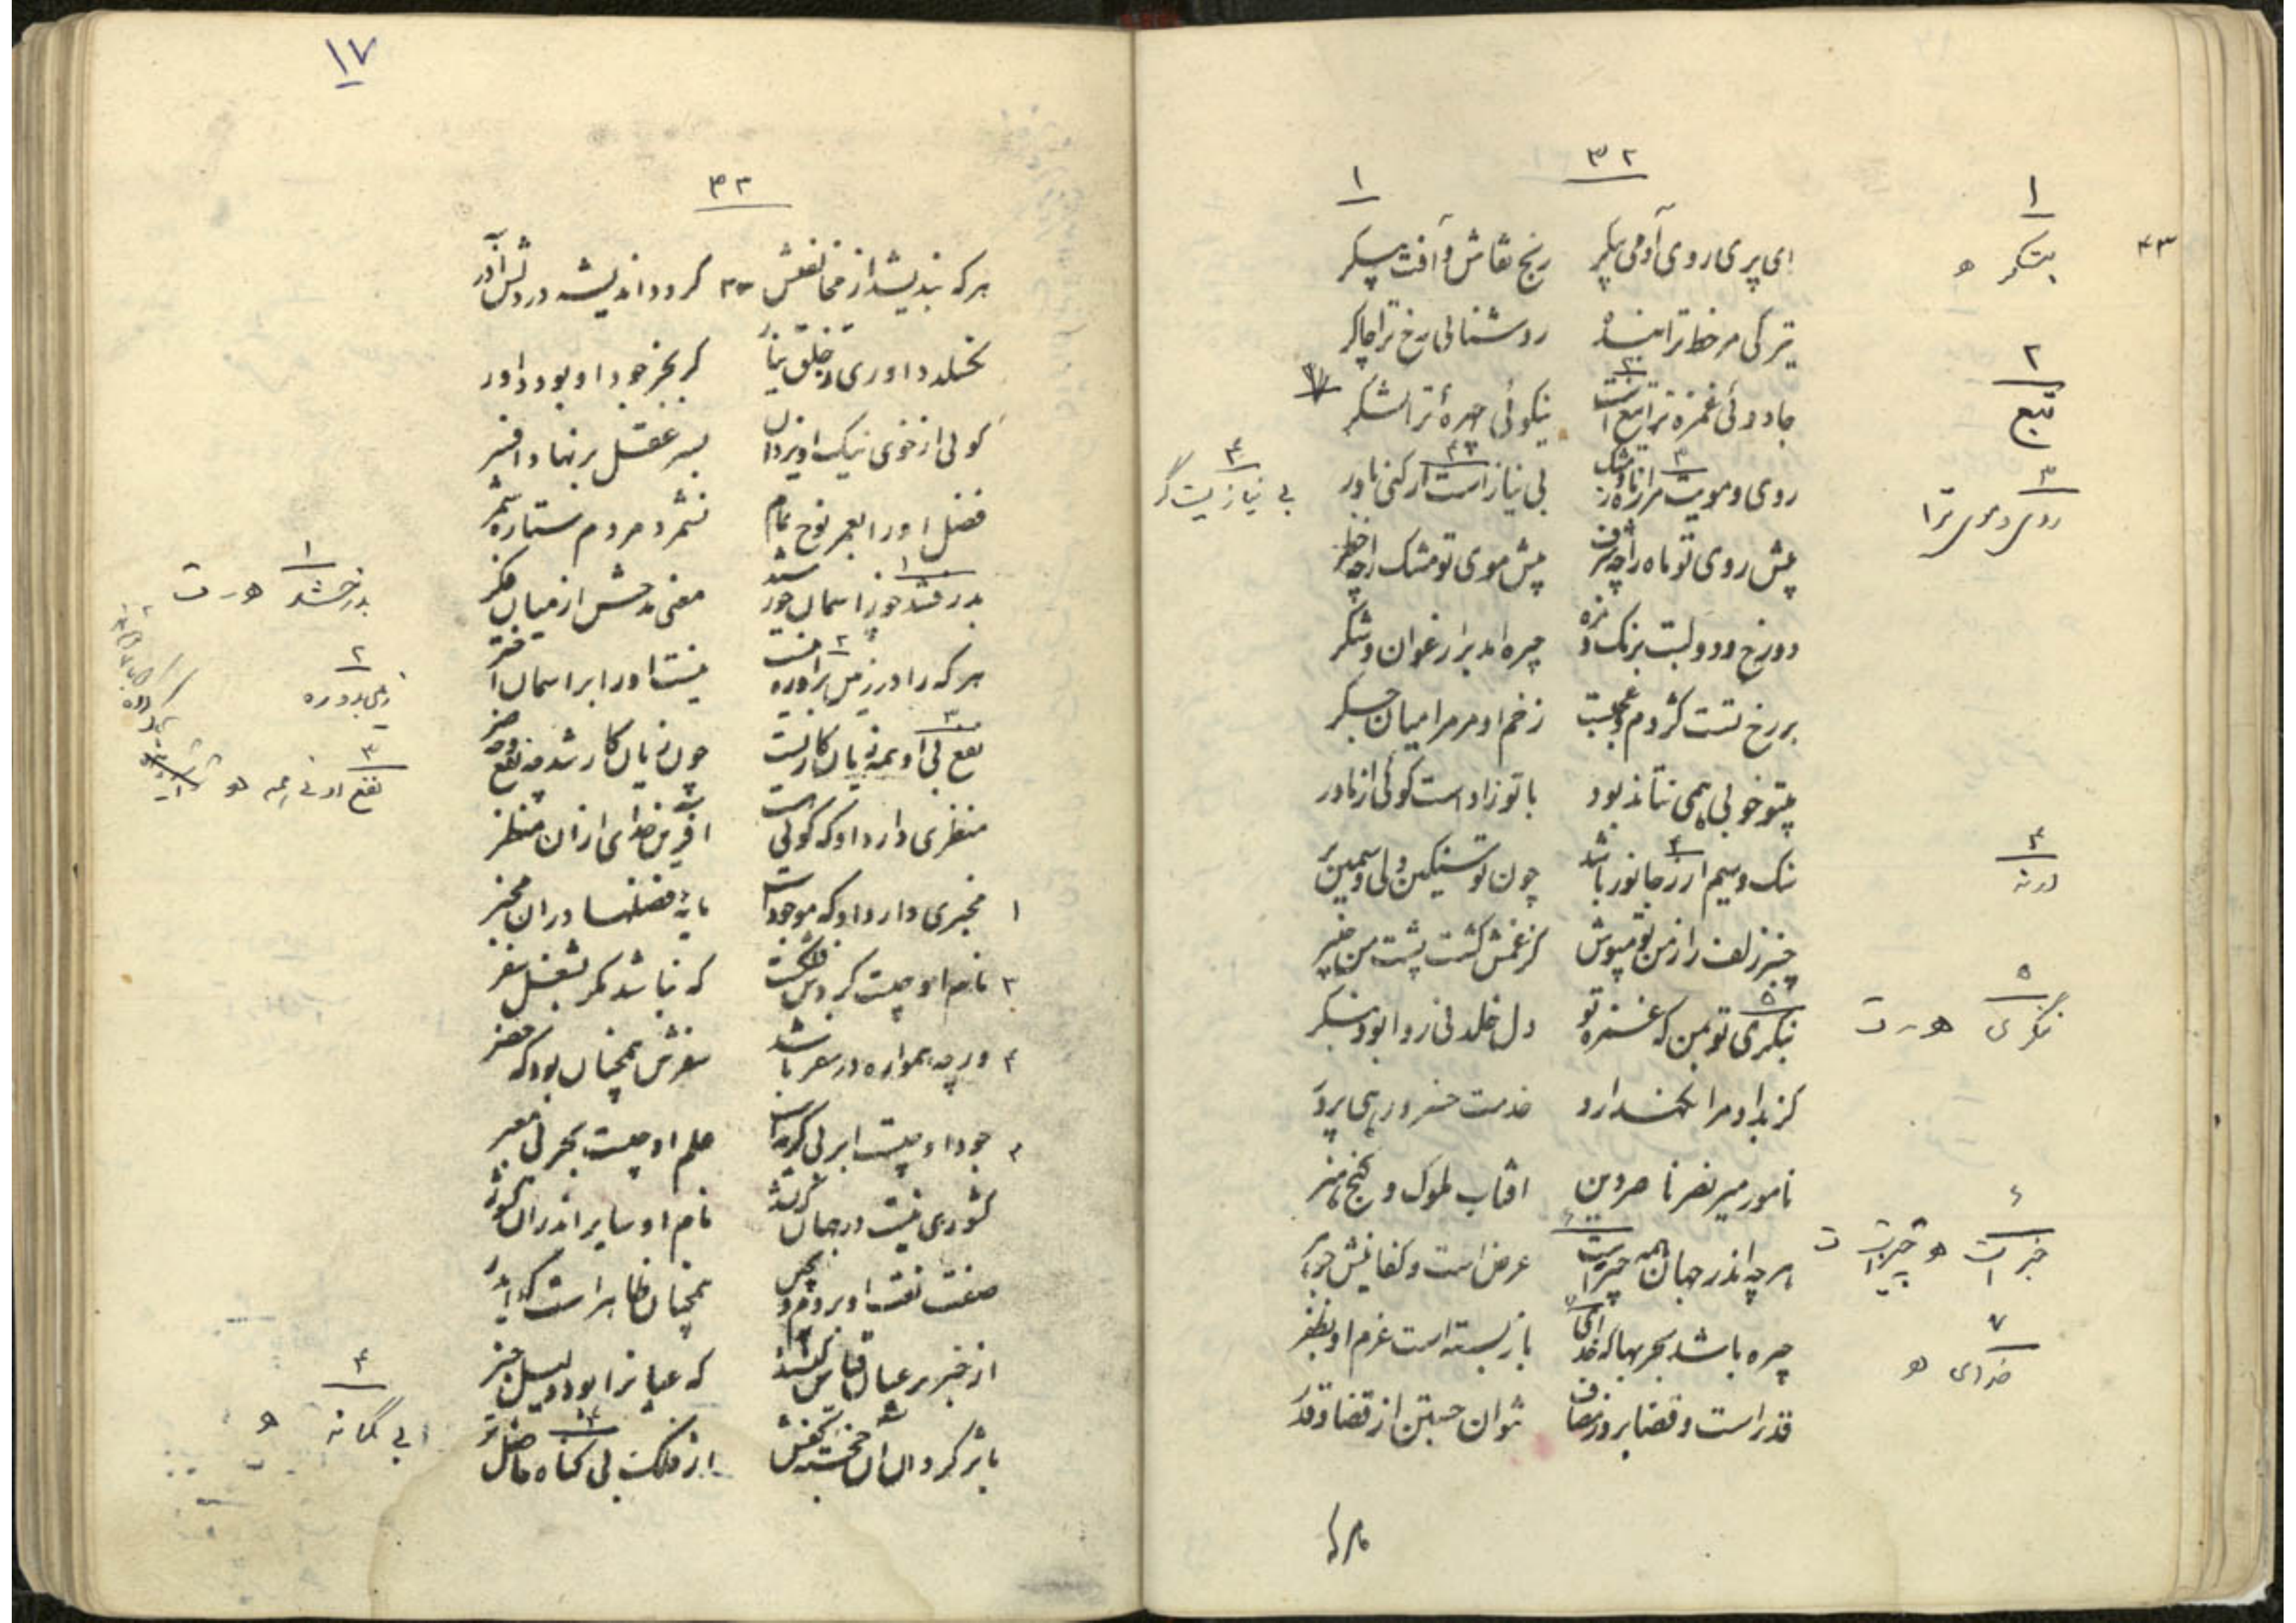 ۳۲
۱
ای پری روی آدمی پیکر رنج نقاش و آفت بتگر
تیرگی مر خط ترا بنده روشنائی رخ ترا چاکر
جادوئی غمزه ترا تبع است نیکوئی چهرهٔ ترا لشکر
روی و مویت مر از ماه و مشک بی نیاز است ار کنی باور
پیش روی تو ماه را چه شرف پیش موی تو مشک را چه خطر
دو رخ و دو لبت برنک و مزه چیره اند بر ارغوان و شکر
بر رخ تست کژدم و عجبست زخم او مر مرا میان جگر
بتو خوبی همی نتاند بود با تو زاد است گوئی از مادر
سنک و سیم ار ز جانور باشد چون تو سنگین دلی و سیمین بر
چنبر زلف را ز من تو مپوش کز غمش گشت پشت من چنبر
نگری تو بمن که غمزه تو دل خلد نی روا بود منگر
گر بداد مرا نگهدارد خدمت خسرو رهی پرور
نامور میر نصر ناصر دین افتاب ملوک و گنج هنر
هر چه اندر جهان همه چیز است عرض است و کفایتش جوهر
چیره باشد بحربها که خدای باز بسته است عزم او بظفر
قدر است و قضا بروز مصاف نتوان جستن از قضا و قدر
۴۳
۱
بتگر ه
۲
تبع
۳
روی و موی ترا
۳
بی نیاز نیست گر
۴
ورنه
۵
نگری ه ر ت
۶
خبر است ه چیز است ت
۷
خدای ه
۱۷
۳۳
هر که بندیشد از مخالفتش گردد اندیشه در دلش آذر
نخلد داوری ز خلق بنا کر بجز جود او بود داور
گوئی از خوی نیک او یزدان بسر عقل بر نهاد افسر
فضل او را بعمر نوح تمام نشمرد مردم ستاره شمر
بدرفشد چو ز اسمان خورشید معنی مدحش از میان فکر
هر که را در زمین بر او ره نیست نیست او را بر اسمان اختر
نفع بی او همه زیان کار است چون زیان کار شد چه نفع و چه ضر
منظری دارد او که گوئی هست افرین خدای از ان منظر
۱ مخبری دارد او که موجود است مایهٔ فضلها در ان مخبر
۳ نام او چیست گردش فلکست که نباشد مگر بشغل سفر
۴ ور چه همواره در سفر باشد سفرش همچنان بود که حضر
۲ جود او چیست ابر بی کرانست علم او چیست بحر بی معبر
کشوری نیست در جهان که نشد نام او سایر اندر ان کشور
صفت نعت او بروم و بچین همچنان ظاهر است کایدر
از خبر بر عیان قیاس کنند که عیانرا بود دلیل خبر
باثر گردد ان خجسته کفش از فلک بی گناه فاضل تر
۱
بدرخشد ه ر ت
۲
زمی برو ره
۳
نفع او بی همه ه
۴
بی گمانه ه